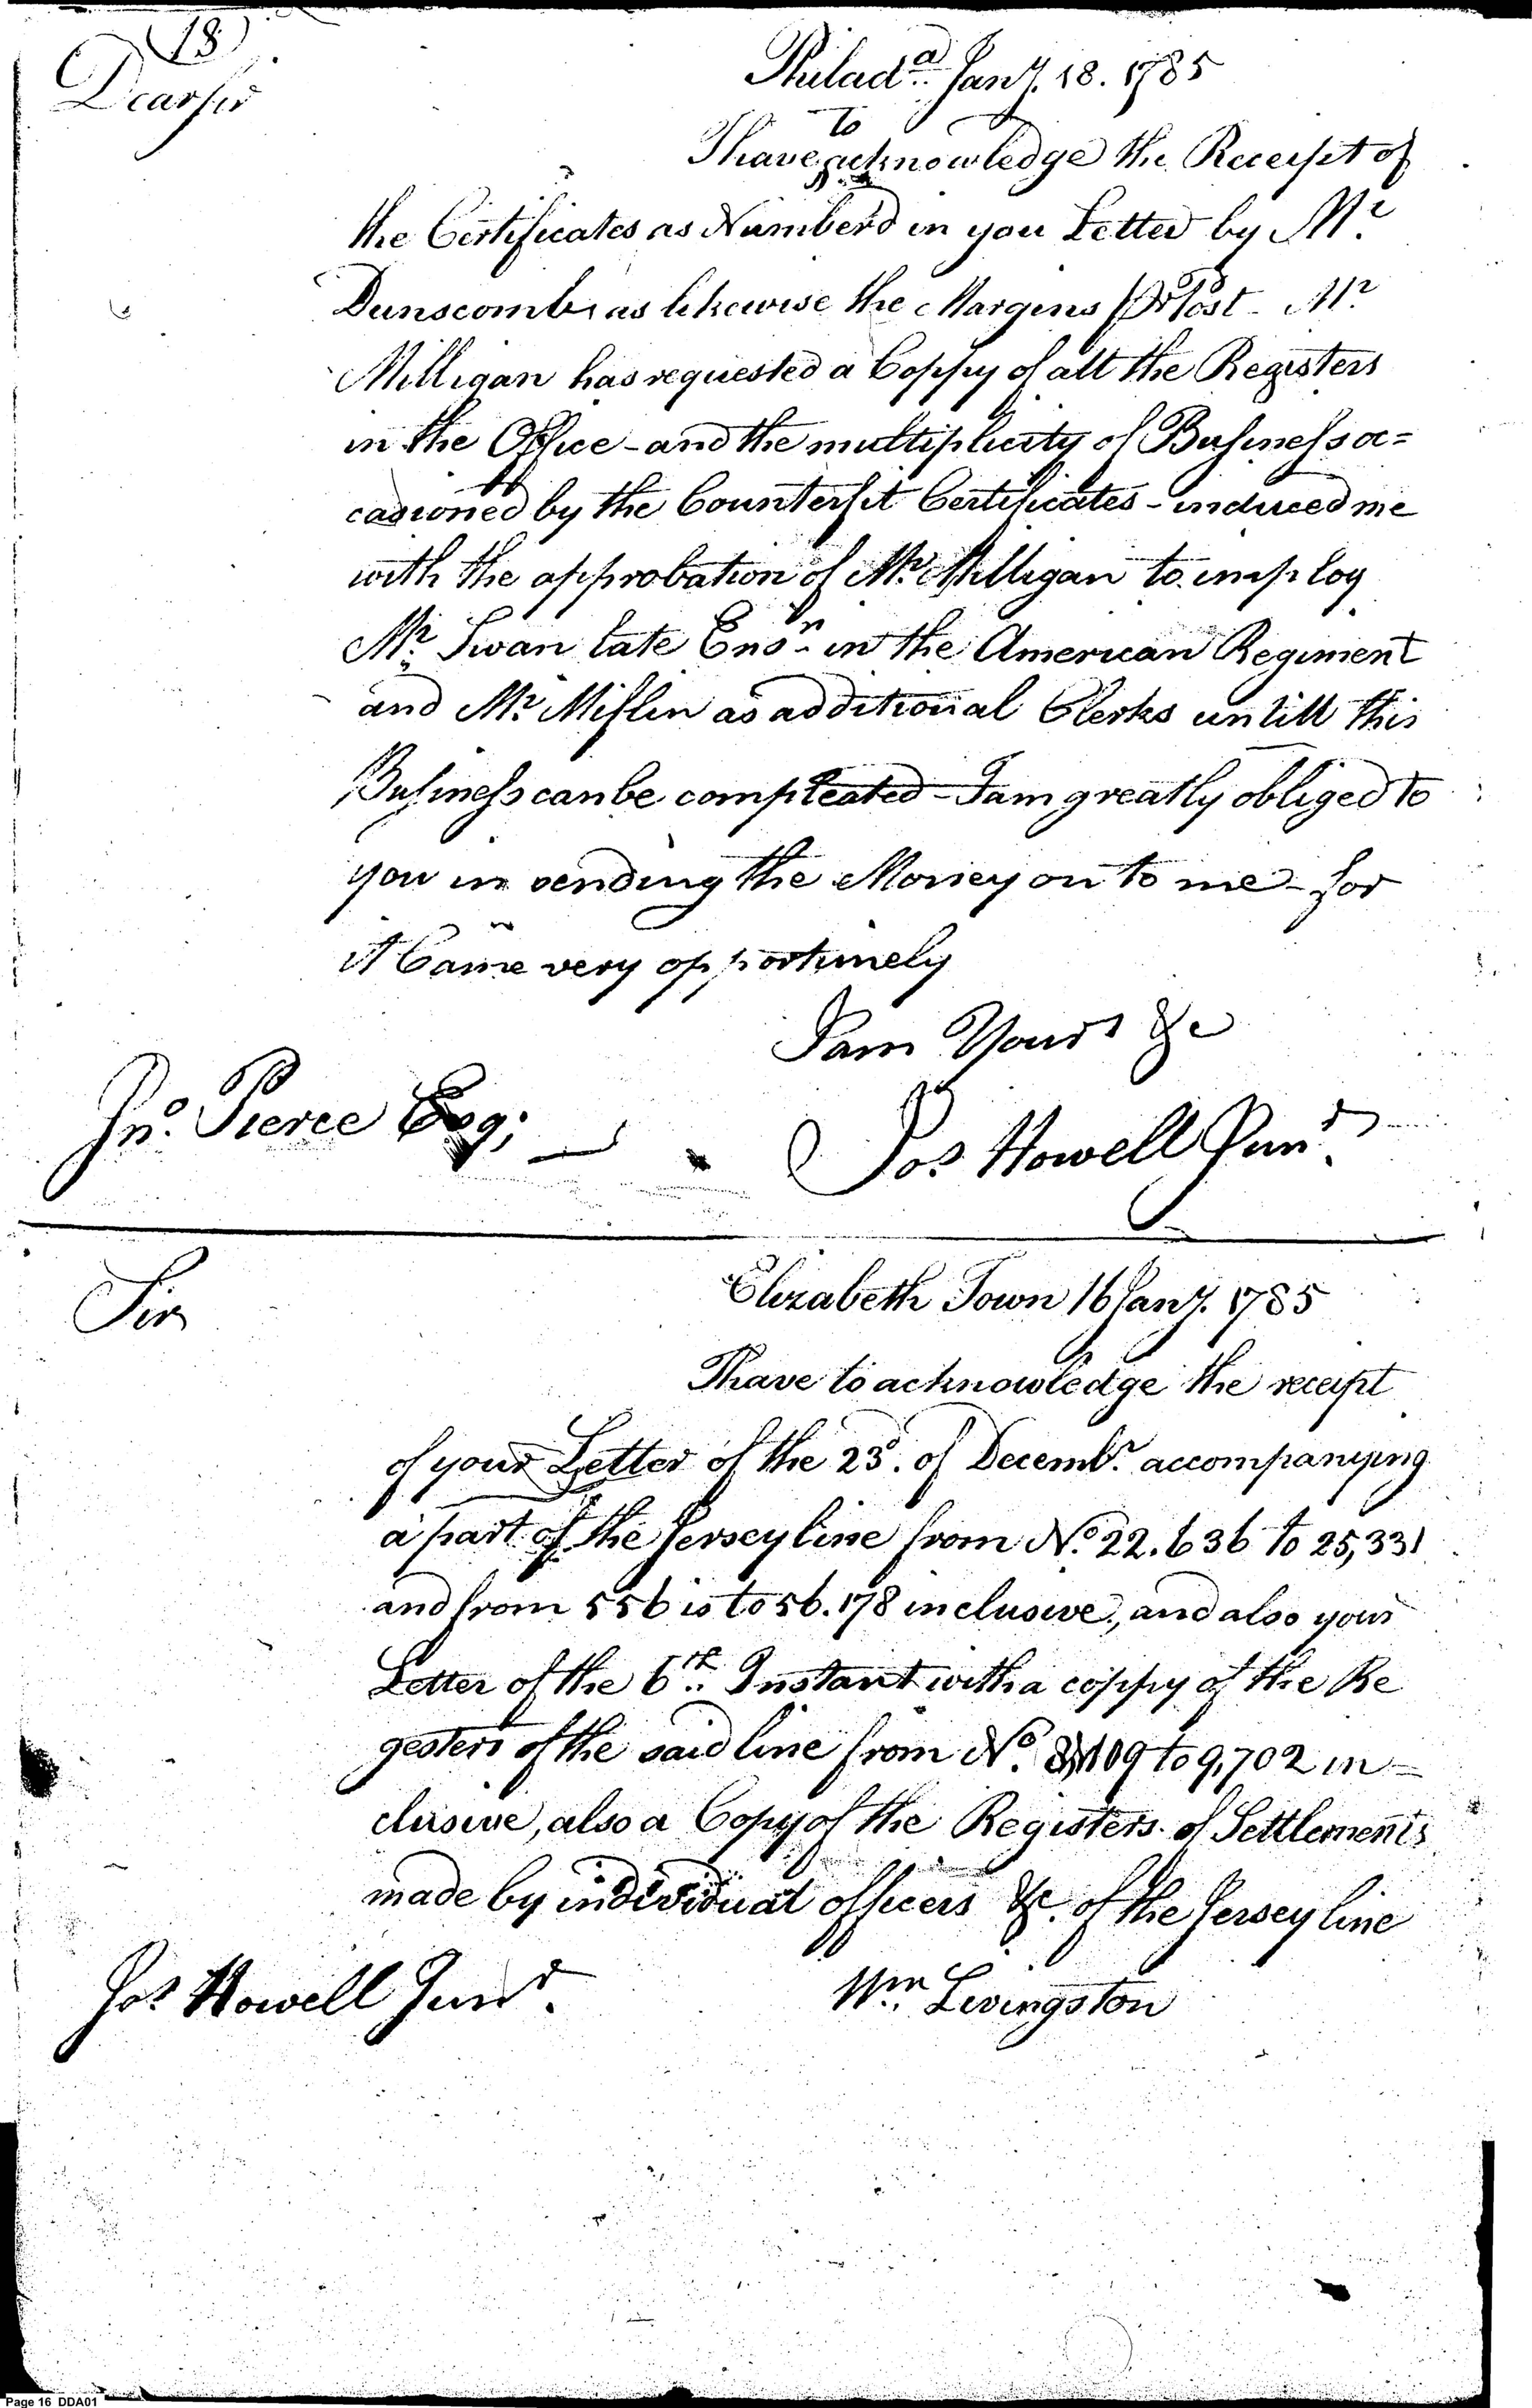 (18)
Philad.a Jany. 18. 1785
Dear Sir
to
I have acknowledge the Receipt of
the Certificates as Number'd in you Letter by Mr.
Dunscomb, as likewise the Margins Pr Post - Mr.
Milligan has requested a Coppy of all the Registers
in the Office - and the multiplicity of Business oc=
casioned by the Counterfit Certificates - induced me
with the approbation of Mr. Milligan to imploy
Mr. Swan late Ensn. in the American Regiment
and Mr. Miflin as additional Clerks untill this
Business can be compleated - I am greatly obliged to
you in sending the Money on to me - for
it Came very opportunely
I am Yours &c
Jno. Pierce Esq;
Jos Howell Junr.
Elizabeth Town 16 Jany. 1785
Sir
I have to acknowledge the receipt
of your Letter of the 23d. of Decembr. accompanying
a part of the Jersey line from No. 22.636 to 25,331
and from 556 is to 56.178 inclusive, and also your
Letter of the 6th. Instant with a coppy of the Re
gesters of the said line from No. 109 to 9,702 in=
clusive, also a Copy of the Registers of Settlements
made by individual officers &c. of the Jersey line
Jos Howell Junr.
Wm. Livingston
Page 16 DDA01